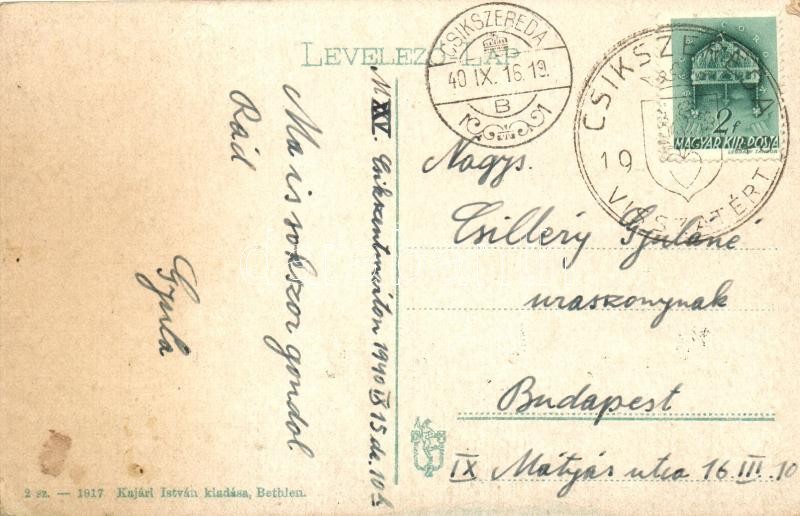 LEVELEZŐ-LAP
CSIKSZEREDA
40 IX. 16. 19.
B
CSIKSZEREDA
19
VISSZATÉRT
2f
MAGYAR KIR. POSTA
M XV. Csikszentmárton 1940 IX 15 de. 10 h
Ma is sokszor gondol
Rád
Gyula
Nagys.
Csilléry Gyuláné
uraszonynak
Budapest
IX Mátyás utca 16 III. 10
2 sz. — 1917 Kajári István kiadása, Bethlen.